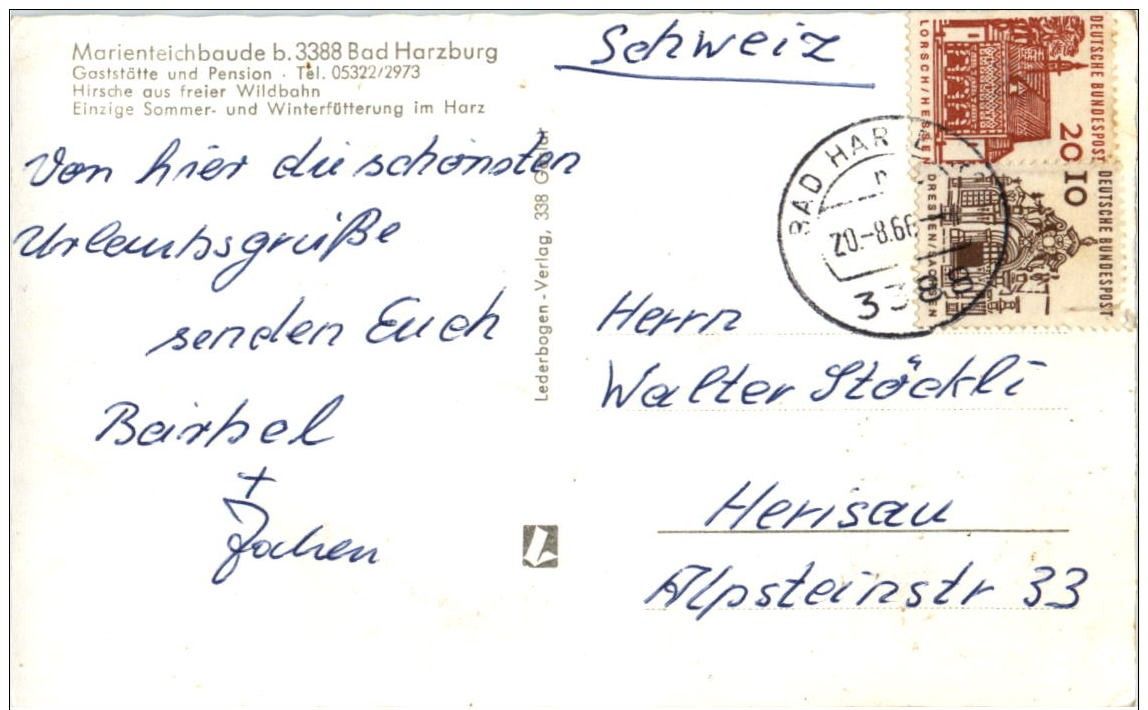 Marienteichbaude b. 3388 Bad Harzburg
Gaststätte und Pension · Tel. 05322/2973
Hirsche aus freier Wildbahn
Einzige Sommer- und Winterfütterung im Harz
Von hier die schönsten
Urlaubsgrüße
senden Euch
Bärbel
+
Jochen
Lederbogen-Verlag, 338 Goslar
Schweiz
DEUTSCHE BUNDESPOST
20
LORSCH/HESSEN
DEUTSCHE BUNDESPOST
10
DRESDEN/SACHSEN
BAD HARZBURG
20.-8.66
3388
Herrn
Walter Stöckli
Herisau
Alpsteinstr 33